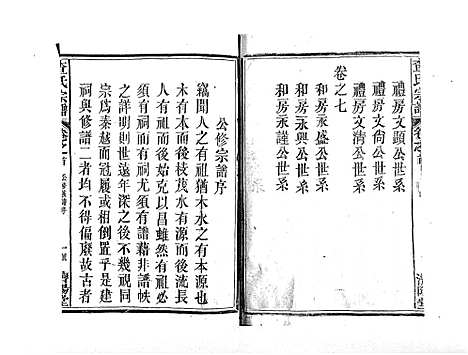 禮房文顯公世系
禮房文尚公世系
禮房文清公世系
卷之七
和房永盛公世系
和房永興公世系
和房永謹公世系
公修宗譜序
竊聞人之有祖猶木水之有本源也
人有祖而生枝茂水有源而流長
人之有祖必有宗昌雖然有祖必
須有祠而有祠尤須有譜藉非譜帙
之詳明而世遠年深之後不幾視同
宗爲秦越而冠履亦倒置乎是宗
祠與修譜二者均不得偏廢故古者
氏宗譜
公修宗譜序